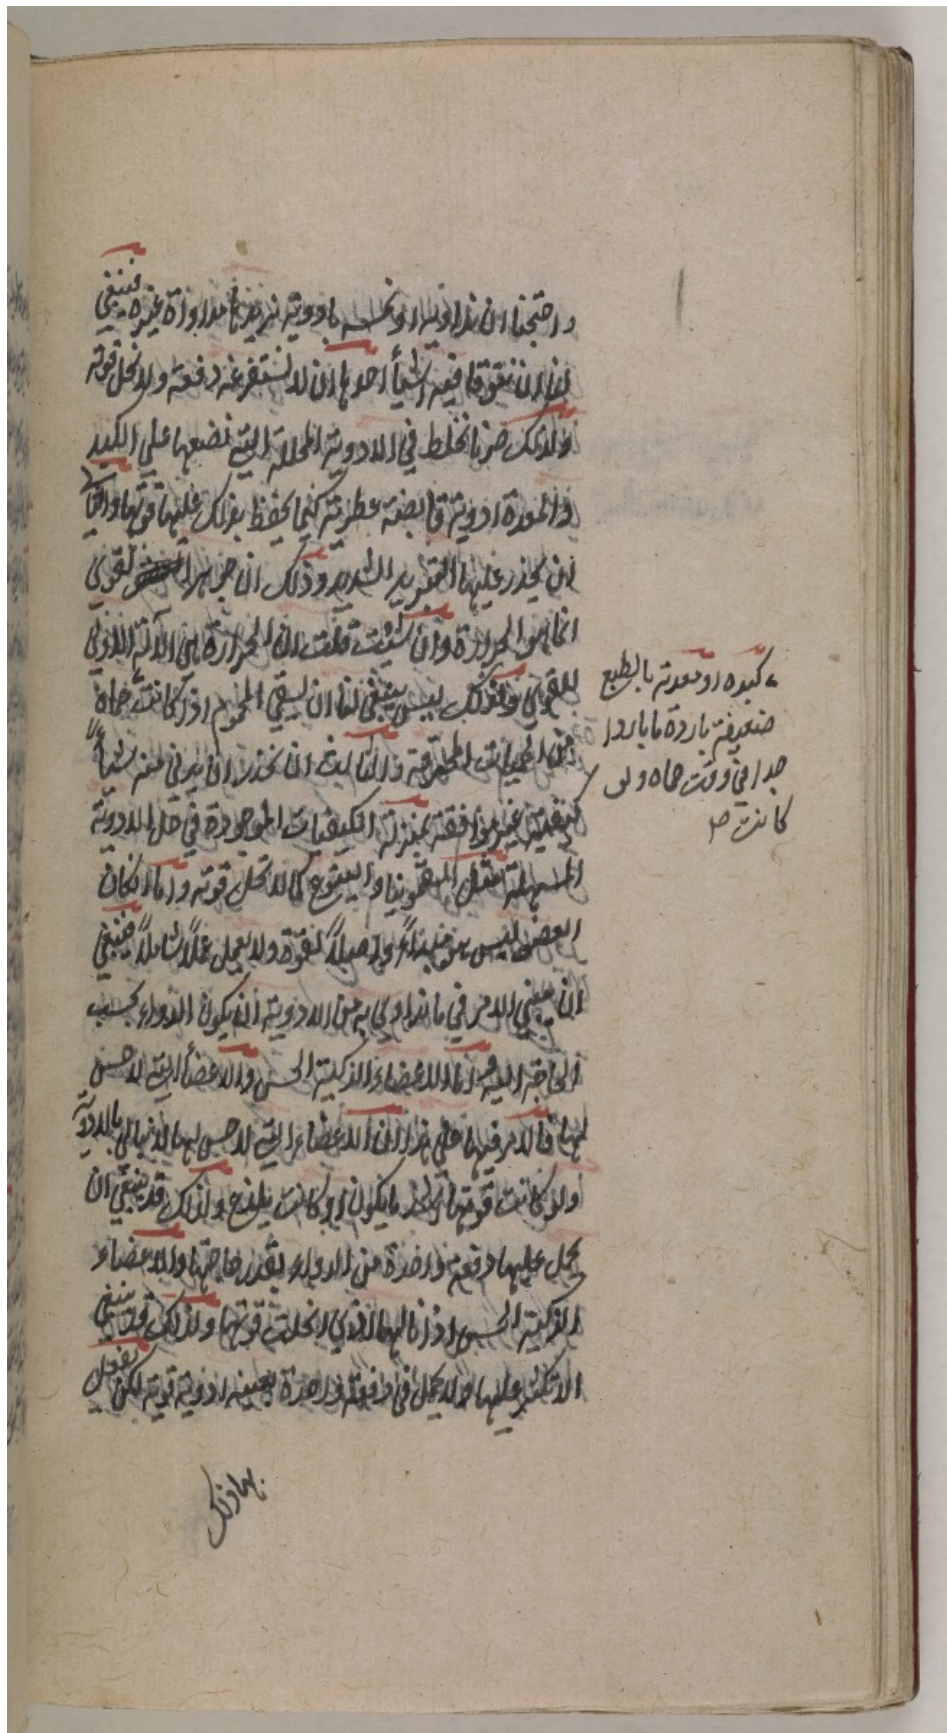 واحتجنا ان نداويه او نحسه بادوية نريد بها مداواة غيره فينبغي
لنا ان نتفقد فيه اشيأ احدها ان لا نستفرغه دفعة ولا نحل قوته
ولذلك صرنا نخلط في الادوية المحللة التي نضعها على الكبد
والمعدة ادوية قابضة عطرية كيما يحفظ بذلك عليها قوتها والثاني
ان نحذر عليها التبريد الشديد وذلك ان جوهر القوي
انما هو الحرارة وان شئت قلت ان الحرارة هي الآلة الاولي
للقوي ولذلك ليس ينبغي لنا ان نسقي المحموم اذا كانت حماه
من الحميات المحرقة والثالث ان نحذر ان يدني منه شيأً
كيفيته غير موافقة بمنزلة الكيفيات الموجودة في كل الادوية
المسهلة مثل السقمونيا واليتوع كما لا تحل قوته واما ان كان
العضو ليس هو مبدأً ولا اصلاً لقوة ولا يعمل عملاً شاملاً فينبغي
ان نبني الامر في ما نداوي به من الادوية ان يكون الدواء بحسب
الحاجة اليه اما الاعضاء الذكية الحس والاعضأ التي لا حس
لها فالامر فيها على هذا ان الاعضاء التي لا حس لها لا تبالي بالادوية
ولو كانت قوتها احد ما يكون او كانت تلذع ولذلك قد ينبغي ان
نحمل عليها دفعة واحدة من الدواء بقدر حاجتها والاعضاء
الذكية الحس اذا نالها الاذي انحلت قوتها ولذلك قد ينبغي
الا تكثر عليها ولا يحمل في دفعة واحدة بعينه ادوية قوية لكن يفعل
بها ذلك
كبده او معدته بالطبع
ضعيفة باردة ما باردا
جدا في وقت حماه ولو
كانت ص